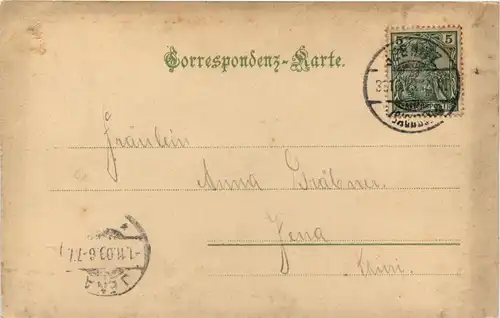 Correspondenz-Karte.
5 5
Fräulein
Anna Gräbner.
Jena
Thüri.
JENA
-1.11.03.6-7.